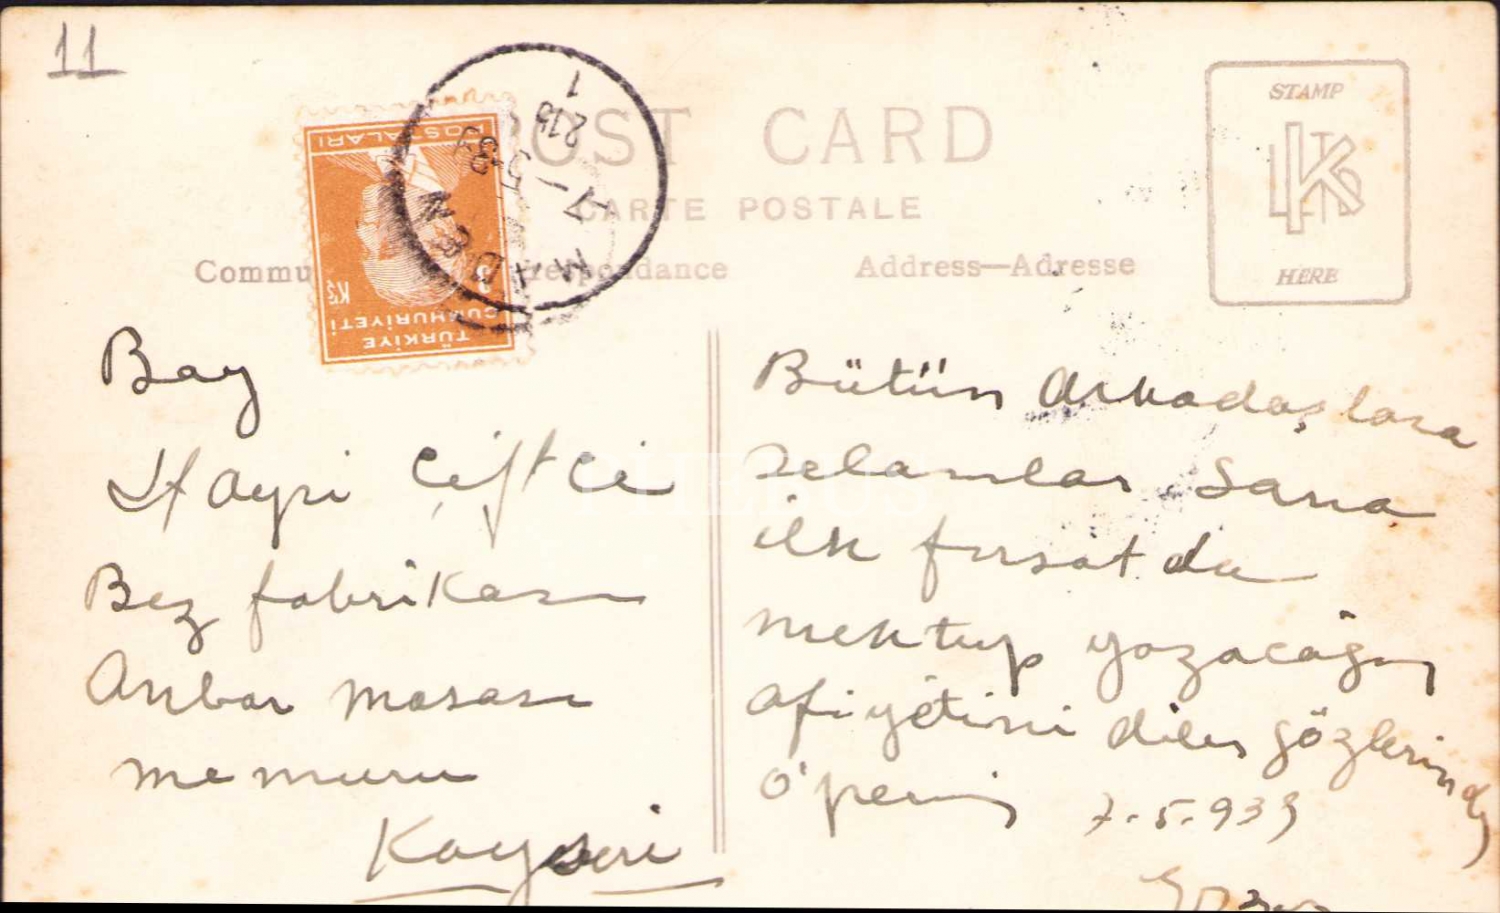 11
POST CARD
CARTE POSTALE
Address—Adresse
STAMP
HERE
POSTALARI
KŞ
TÜRKİYE
CUMHURİYETİ
Bay
Hayri Çiftci
Bez fabrikası
Anbar masası
memuru
Kayseri
Bütün arkadaşlara
selamlar Sana
ilk fırsatda
mektup yazacağım
afiyetini diler gözlerinden
öperim
7.5.939